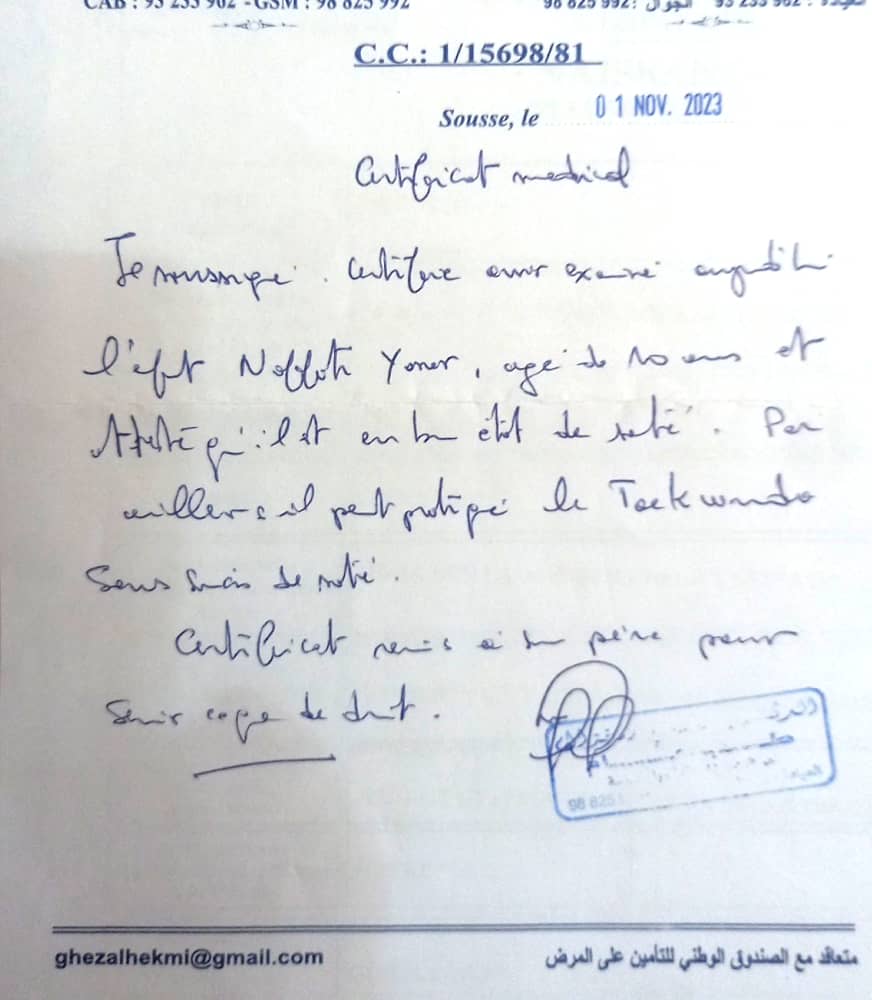 CAB : 93 233 962 - GSM : 98 825 992
98 825 992 : الجوال
C.C.: 1/15698/81
Sousse, le 01 NOV. 2023
Certificat medical
Je soussigné. Certifie avoir examiné aujourd'hui
l'enfant Yaner, agé de 10 ans et
Atteste qu'il est en bon état de santé. Par
ailleurs il peut pratiquer le Taekwondo
Sans soucis de santé.
Certificat remis à son père pour
Servir ce que de droit.
98 825
ghezalhekmi@gmail.com
متعاقد مع الصندوق الوطني للتأمين على المرض